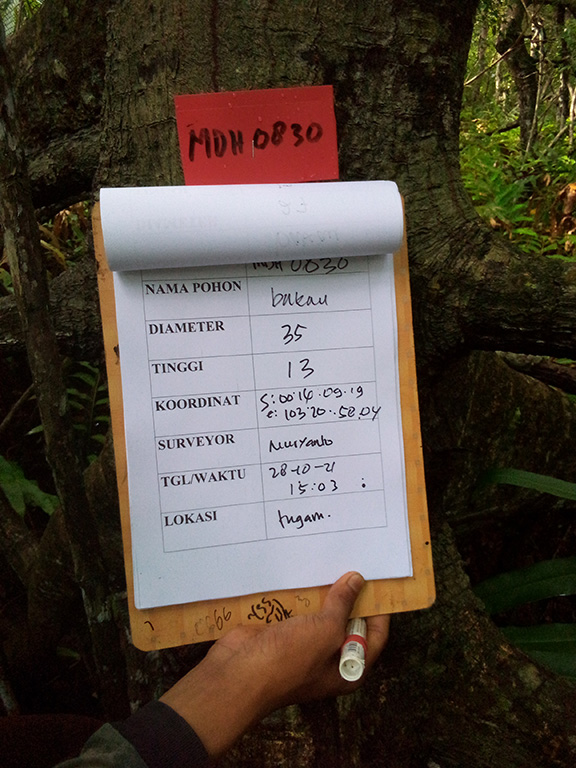 MDH 0830
MDH 0830
NAMA POHON bakau
DIAMETER 35
TINGGI 13
KOORDINAT S: 00'14.09.19
E: 103'20.58.04
SURVEYOR Nuryanto
TGL/WAKTU 28-10-21
15:03
LOKASI tugam.